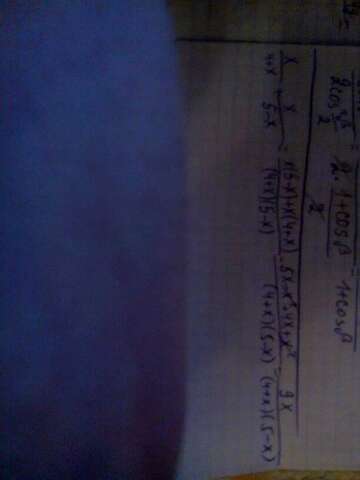 2cos²β/2 = 2·(1+cosβ)/2 = 1+cosβ
x/(4+x) + x/(5-x) = (x(5-x)+x(4+x))/((4+x)(5-x)) = (5x-x²+4x+x²)/((4+x)(5-x)) = 9x/((4+x)(5-x))